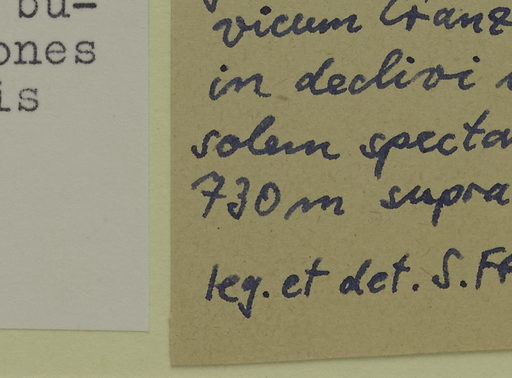 bu-
ones
is
vicum Cranz
in declivi
solem specta
730 m supra
leg. et det. S. FR